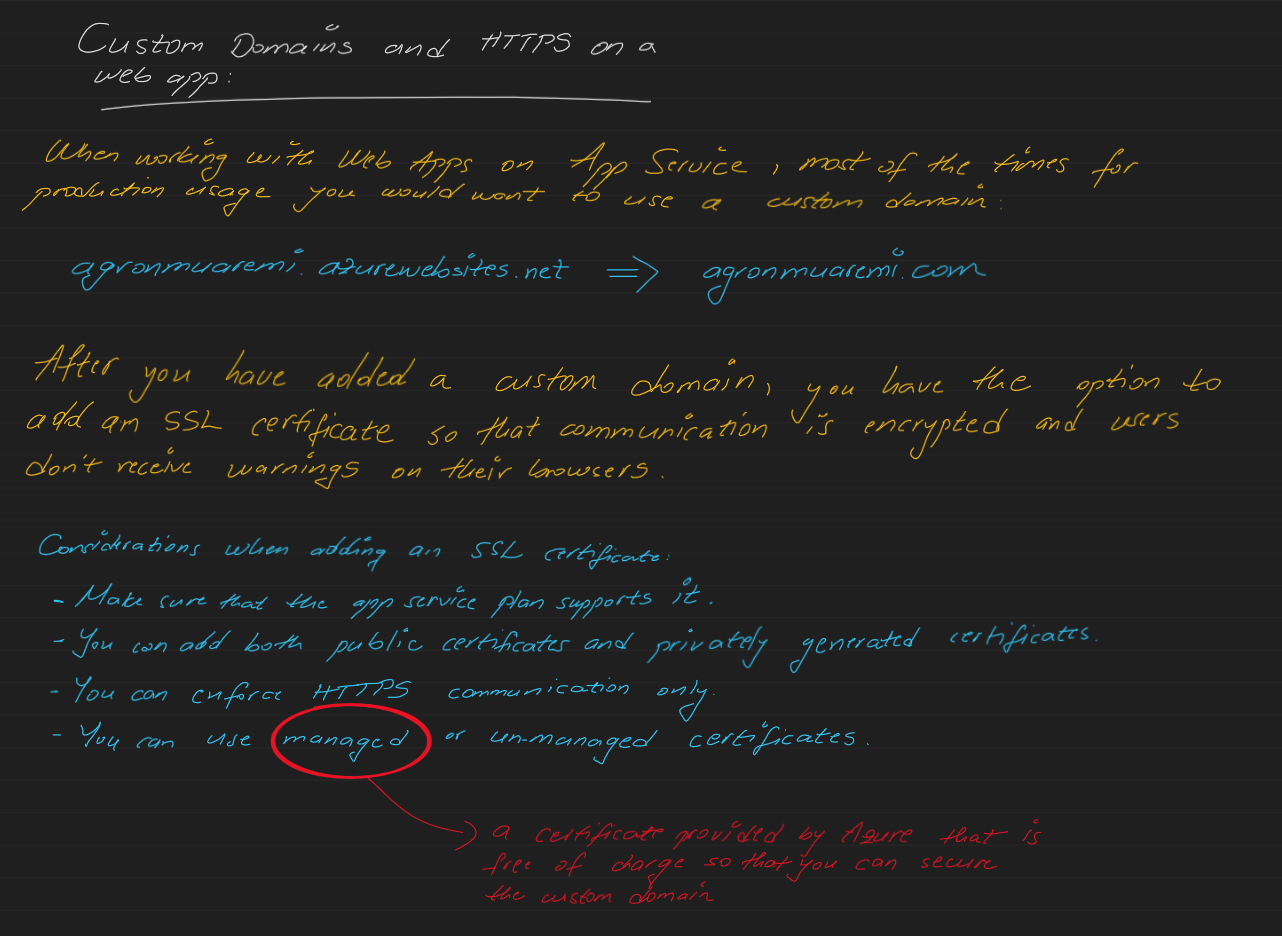 Custom Domains and HTTPS on a
web app:
When working with Web Apps on App Service, most of the times for
production usage you would want to use a custom domain:
agronmuaremi.azurewebsites.net => agronmuaremi.com
After you have added a custom domain, you have the option to
add an SSL certificate so that communication is encrypted and users
don't receive warnings on their browsers.
Considerations when adding an SSL certificate:
- Make sure that the app service plan supports it.
- You can add both public certificates and privately generated certificates.
- You can enforce HTTPS communication only.
- You can use managed or un-managed certificates.
a certificate provided by Azure that is
free of charge so that you can secure
the custom domain